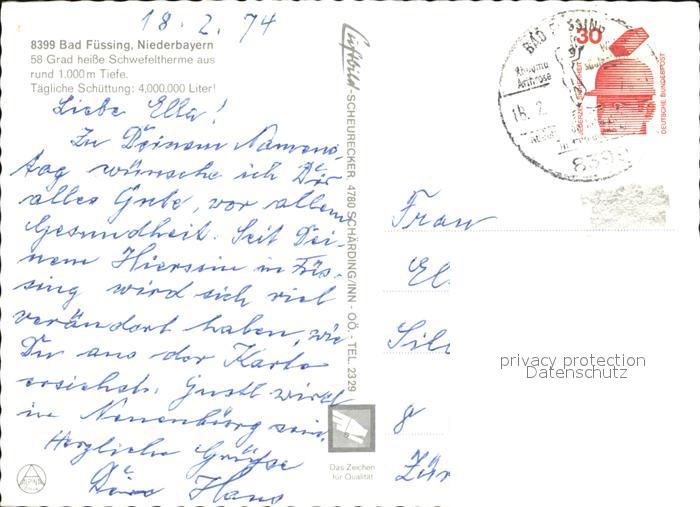 18. 2. 74
8399 Bad Füssing, Niederbayern
58 Grad heiße Schwefeltherme aus
rund 1.000 m Tiefe.
Tägliche Schüttung: 4,000.000 Liter!
Liebe Ella!
Zu Deinem Namens-
tag wünsche ich Dir
alles Gute, vor allem
Gesundheit. Seit Dei-
nem Hiersein in Füs-
sing wird sich viel
verändert haben, wie
Du aus der Karte
ersiehst. Gustl wirkt
in Neuenbürg
Herzliche Grüße
Dein Hans
Luftbild-SCHEURECKER, 4780 SCHÄRDING/INN - OÖ. - TEL. 2329
Das Zeichen
für Qualität
ALPINA
BAD FÜSSING
Rheuma
Arthrose
18. 2.
8399
30
JEDERZEIT SICHERHEIT
DEUTSCHE BUNDESPOST
Frau
El
Sil
8
Zür
privacy protection
Datenschutz